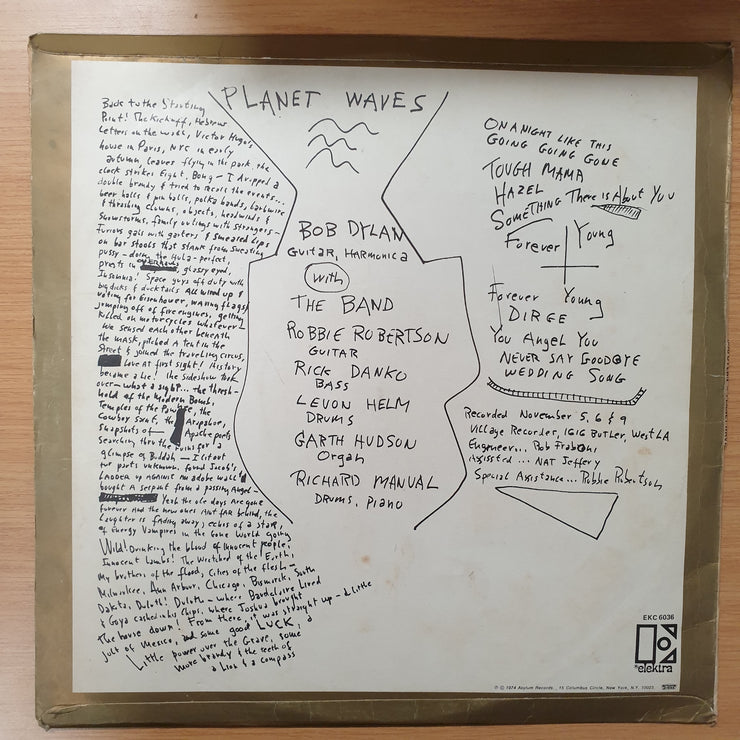 PLANET WAVES
Back to the Starting
Point! The Kickoff, Hebrew
Letters on the wall, Victor Hugo's
house in Paris, NYC in early
autumn, leaves flying in the park, the
clock strikes Eight, Bong - I dropped a
double brandy & tried to recall the events...
beer halls & pin balls, polka bands, barbwire
& thrashing clowns, objects, headwinds &
Snowstorms, family outings with strangers -
Furious gals with garters & smeared Lips
on bar stools that stank from sweating
pussy - doing the Hula - perfect,
priests in glassy eyed,
Insomnia! Space guys off duty with
big dicks & ducktails All wired up &
voting for Eisenhower, waving flags &
jumping off of fire engines, getting
killed on motorcycles whatever -
We sensed each other beneath
the mask, pitched a tent in the
Street & joined the traveling circus,
love at first sight! History
became a Lie! the sideshow took
over - what a sight... the thresh-
hold of the Modern Bomb,
Temples of the Pawnee, the
Cowboy Saint, the Arapahoe,
Snapshots of Apache poets
Searching thru the ruins for a
glimpse of Buddah - I lit out
for parts unknown, found Jacob's
LADDER up AGAINST an adobe wall &
bought A serpent from a passing Angel -
Yeah the ole days Are gone
forever And the new ones Aint fAR behind, the
Laughter is fading away, echos of a star,
of Energy Vampires in the Gone World going
Wild! Drinking the blood of innocent people,
Innocent Lambs! The Wretched of the Earth,
My brothers of the flood, Cities of the flesh -
Milwaukee, Ann Arbor, Chicago, Bismarck, South
Dakota, Duluth! Duluth - where Baudelaire Lived
& Goya cashed in his Chips, where Joshua brought
the house down! From there, it was straight up - a little
jolt of Mexico, and some good LUCK, a
Little power over the Grave, some
more brandy & the teeth of
a Lion & a compass
BOB DYLAN
GUITAR, HARMONICA
With
THE BAND
ROBBIE ROBERTSON
GUITAR
RICK DANKO
BASS
LEVON HELM
DRUMS
GARTH HUDSON
Organ
RICHARD MANUAL
DRUMS, PIANO
ON A NIGHT LIKE THIS
GOING GOING GONE
TOUGH MAMA
HAZEL
SOMETHING There is About You
Forever Young
Forever Young
DIRGE
You Angel You
NEVER SAY GOODBYE
WEDDING SONG
Recorded November 5, 6 & 9
Village Recorder, 1616 BUTLER, West LA
Engineer... Rob Fraboni
Assissted... NAT Jeffery
Special Assistance... Robbie Robertson
EKC 6036
elektra
℗ © 1974 Asylum Records, 15 Columbus Circle, New York, N.Y. 10023